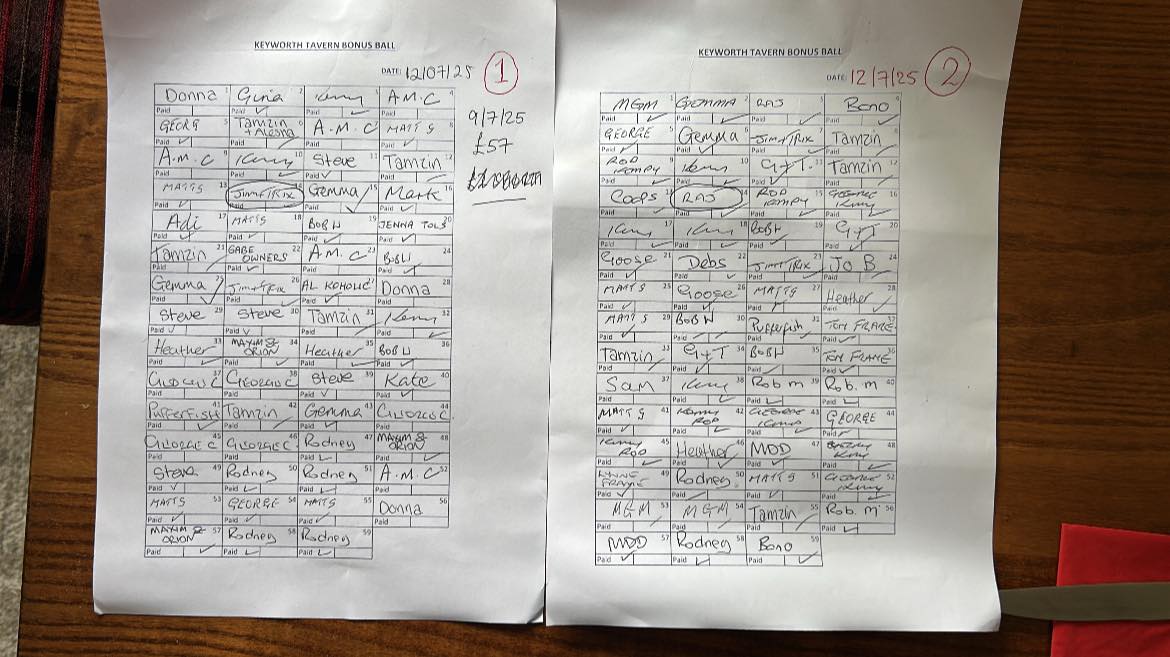 KEYWORTH TAVERN BONUS BALL
DATE: 12/07/25 1
Donna 1 Gina 2 Kenny 3 A.M.C 4
Paid Paid Paid Paid
GEORG 5 Tamzin + Alesha 6 A.M.C 7 MATT S 8
Paid Paid Paid Paid
A.M.C 9 Kenny 10 Steve 11 Tamzin 12
Paid Paid Paid Paid
MATTS 13 Jim+Trix 14 Gemma 15 Mark 16
Paid Paid Paid Paid
Adi 17 MATTS 18 BoB W 19 JENNA TOLS 20
Paid Paid Paid Paid
Tamzin 21 GABE OWNERS 22 A.M.C 23 BoBW 24
Paid Paid Paid Paid
Gemma 25 Jim+Trix 26 AL KOHOLIC 27 Donna 28
Paid Paid Paid Paid
Steve 29 Steve 30 Tamzin 31 Kenny 32
Paid Paid Paid Paid
Heather 33 MAXIM & ORION 34 Heather 35 BoB W 36
Paid Paid Paid Paid
GEORGE C 37 GEORGE C 38 Steve 39 Kate 40
Paid Paid Paid Paid
PUFFERFISH 41 Tamzin 42 Gemma 43 GEORGE C. 44
Paid Paid Paid Paid
GEORGE C 45 GEORGE C 46 Rodney 47 MAXIM & ORION 48
Paid Paid Paid Paid
Steve 49 Rodney 50 Rodney 51 A.M.C 52
Paid Paid Paid Paid
MATTS 53 GEORGE 54 MATTS 55 Donna 56
Paid Paid Paid Paid
MAXIM & ORION 57 Rodney 58 Rodney 59
Paid Paid Paid
9/7/25
£57
KEYWORTH TAVERN BONUS BALL
DATE: 12/7/25 2
MGM 1 GEMMA 2 RAS 3 Bono 4
Paid Paid Paid Paid
GEORGE 5 Gemma 6 Jim+Trix 7 Tamzin 8
Paid Paid Paid Paid
ROD KENNY 9 Kenny 10 G+T 11 Tamzin 12
Paid Paid Paid Paid
Coops 13 RAS 14 ROD KENNY 15 GEORGE Kenny 16
Paid Paid Paid Paid
Kenny 17 Kenny 18 BoBW 19 G+T 20
Paid Paid Paid Paid
Goose 21 Debs 22 Jim+Trix 23 Jo B 24
Paid Paid Paid Paid
MATTS 25 Goose 26 MATTS 27 Heather 28
Paid Paid Paid Paid
MATTS 29 BoB W 30 Pufferfish 31 TOM FRAME 32
Paid Paid Paid Paid
Tamzin 33 G+T 34 BoBW 35 TOM FRAME 36
Paid Paid Paid Paid
Sam 37 Kenny 38 Rob m 39 Rob. m 40
Paid Paid Paid Paid
MATTS 41 Kenny ROD 42 GEORGE Kenny 43 GEORGE 44
Paid Paid Paid Paid
Kenny ROD 45 Heather 46 MDD 47 Kenny 48
Paid Paid Paid Paid
LYNNE FRAME 49 Rodney 50 MATTS 51 GEORGE Kenny 52
Paid Paid Paid Paid
MGM 53 MGM 54 Tamzin 55 Rob. m 56
Paid Paid Paid Paid
MDD 57 Rodney 58 Bono 59
Paid Paid Paid